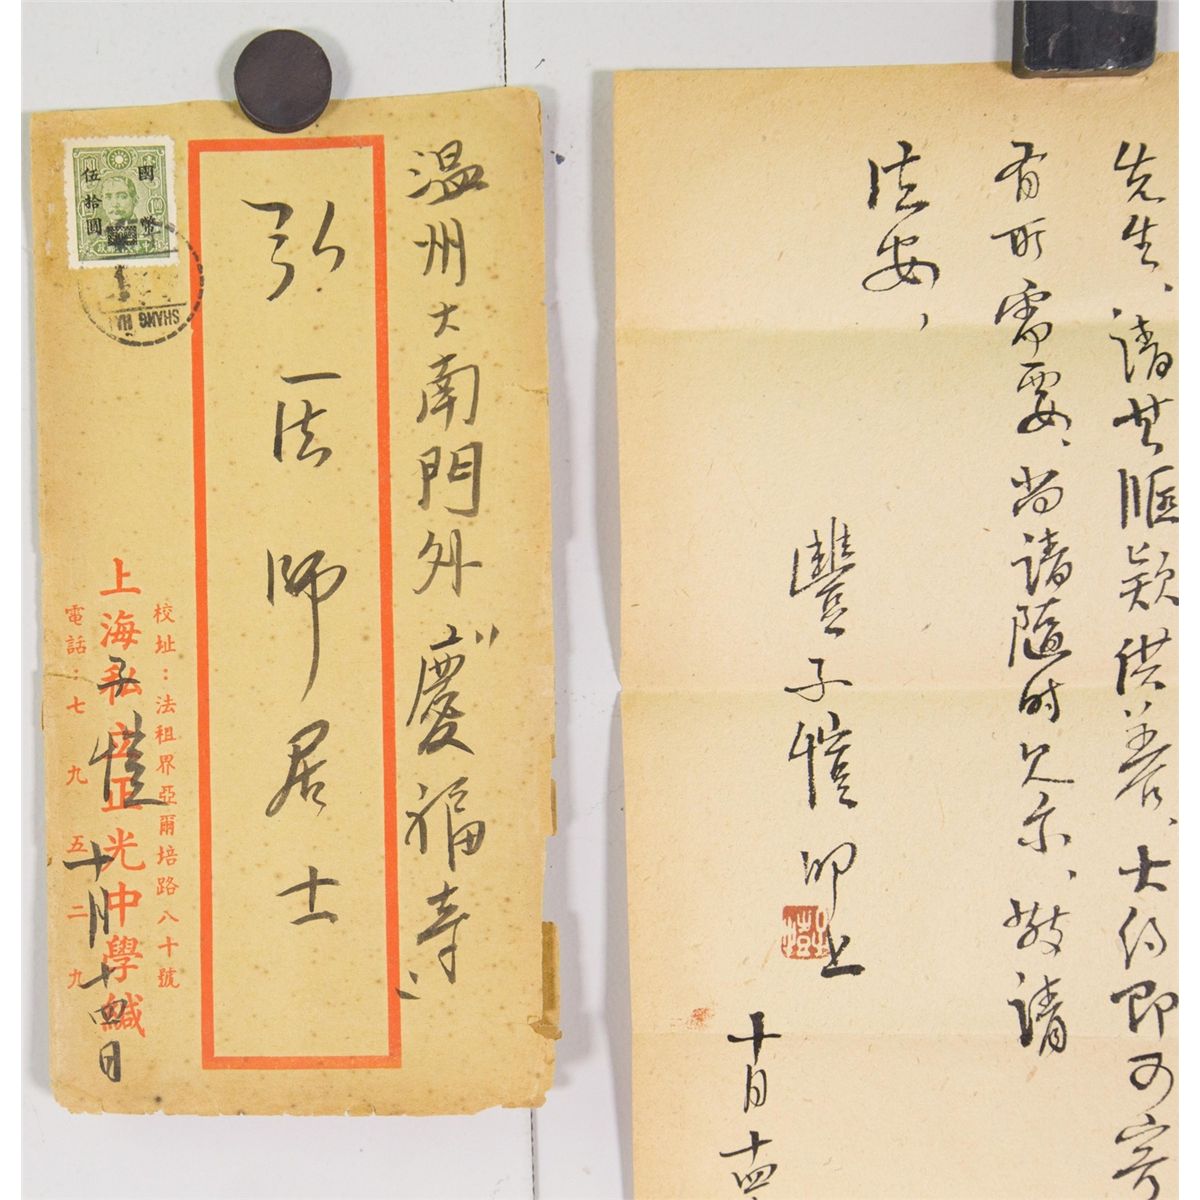 温州大南門外慶福寺
弘一法師居士
校址：法租界亞爾培路八十號
上海私立正光中學緘
電話：七九五二九
子愷
十月十四日
國幣
伍拾圓
SHANGHAI
先生、請其匯款供養、大約即可寄
有所需要、尚請隨時見示、敬請
法安、
豐子愷叩上
十月十四